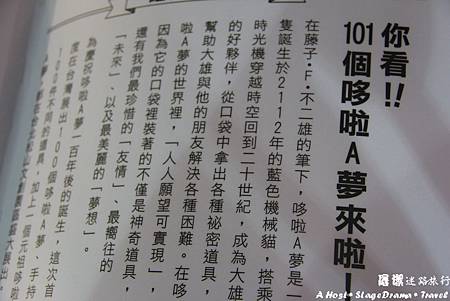 你看!!
101個哆啦A夢來啦!
在藤子·F·不二雄的筆下,哆啦A夢是一
隻誕生於2112年的藍色機械貓,搭乘
時光機穿越時空回到二十世紀,成為大雄
的好夥伴,從口袋中拿出各種祕密道具,
幫助大雄與他的朋友解決各種困難。在哆
啦A夢的世界裡,「人人願望可實現」,
因為它的口袋裡裝著的不僅是神奇道具,
還有我們最珍惜的「友情」、最嚮往的
「未來」、以及最美麗的「夢想」。
為慶祝哆啦A夢一百年後的誕生,這次首
度在台灣展出100個哆啦A夢、手持
100件不同的道具、加上一個元祖哆啦
迷路旅行
A Host·StageDrama·Travel